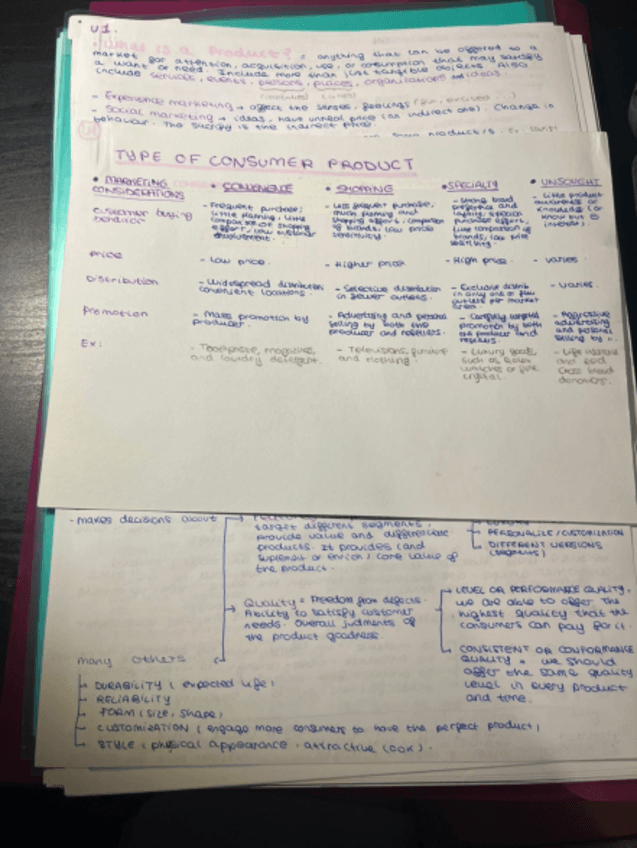 U1.
• What is a product? = anything that can be offered to a
market for attention, acquisition, use, or consumption that may satisfy
a want or need. Include more than just tangible objects. Also
include services, events, persons, places, organizations and ideas.
- Experience marketing → affect the senses, feelings (fun, excited ...)
- Social marketing → ideas, have unreal price (an indirect one). Change in
behaviour. The society is the indirect price.
TYPE OF CONSUMER PRODUCT
• MARKETING CONSIDERATIONS
• CONVENIENCE
• SHOPPING
• SPECIALTY
• UNSOUGHT
Customer buying behavior
- Frequent purchase;
little planning, little
comparison or shopping
effort, low customer
involvement.
- Less frequent purchase,
much planning and
shopping effort, comparison
of brands, low price
sensitivity.
- Strong brand
preference and
loyalty, special
purchase effort,
little comparison of
brands, low price
sensitivity
- Little product
awareness or
knowledge (or
know but
interest)
Price
- Low price.
- Higher price
- High price.
- varies.
Distribution
- Widespread distribution
convenient locations.
- Selective distribution
in fewer outlets.
- Exclusive distrib.
in only one or few
outlets per market
area
- varies.
Promotion
- Mass promotion by
producer.
- Advertising and personal
selling by both the
producer and resellers.
- Carefully targeted
promotion by both
the producer and
resellers.
- Aggressive
advertising
and personal
selling by
Ex:
- Toothpaste, magazines,
and laundry detergent.
- Televisions, furniture
and clothing.
- Luxury goods,
such as Rolex
watches or fine
crystal.
- Life insurance
and Red
Cross blood
donations.
- makes decisions about
target different segments,
provide value and differentiate
products. It provides (and
supplement or enrich) core value of
the product.
PERSONALIZE / CUSTOMIZATION
DIFFERENT VERSIONS
(segments)
→ QUALITY = Freedom from defects.
Ability to satisfy customer
needs. Overall judments of
the product goodness.
LEVEL OR PERFORMANCE QUALITY.
we are able to offer the
highest quality that the
consumers can pay for it.
CONSISTENT OR CONFORMANCE
QUALITY = we should
offer the same quality
level in every product
and time.
many others
DURABILITY (expected life)
RELIABILITY
FORM (size, shape)
CUSTOMIZATION (engage more consumers to have the perfect product)
STYLE (physical appearance. attractive look).